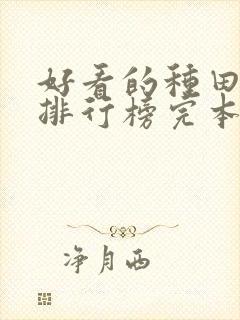 好看的種田
排行榜完本
净月西